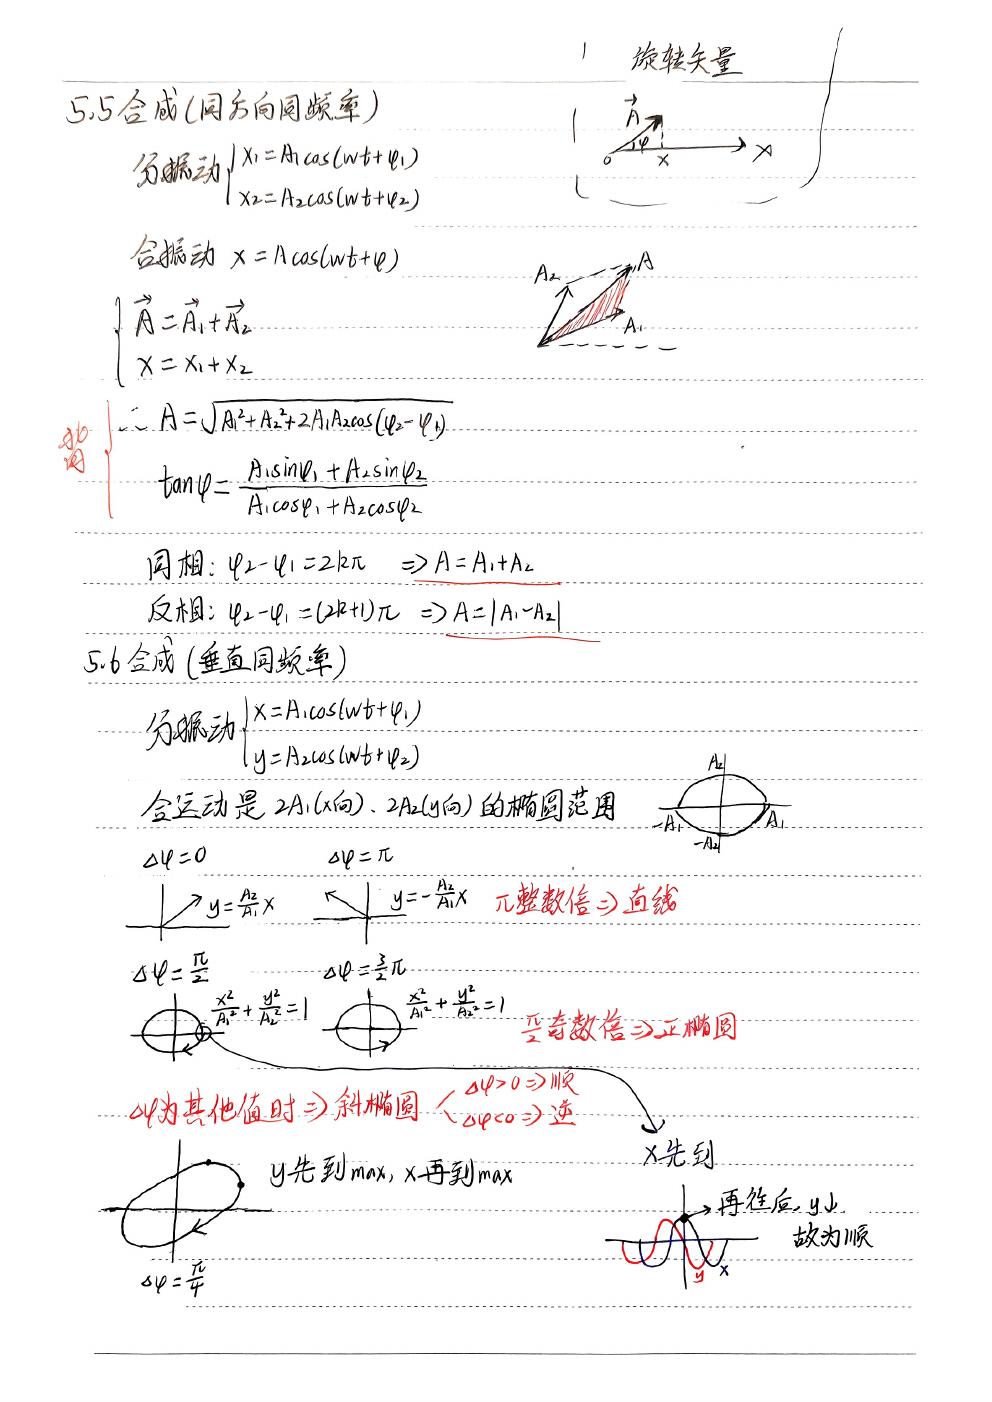 旋转矢量
5.5 合成(同方向同频率)
A⃗ φ o x X
分振动 { x1=A1cos(wt+φ1)
x2=A2cos(wt+φ2)
合振动 x=Acos(wt+φ)
A2 A A1
{ A⃗=A⃗1+A⃗2
x=x1+x2
∴ A=√(A1²+A2²+2A1A2cos(φ2-φ1))
tanφ=(A1sinφ1+A2sinφ2)/(A1cosφ1+A2cosφ2)
同相: φ2-φ1=2kπ ⇒ A=A1+A2
反相: φ2-φ1=(2k+1)π ⇒ A=|A1-A2|
5.6 合成(垂直同频率)
分振动 { x=A1cos(wt+φ1)
y=A2cos(wt+φ2)
合运动是 2A1(x向)、2A2(y向) 的椭圆范围
A2 -A1 A1 -A2
Δφ=0 Δφ=π
y=A2/A1 x y=-A2/A1 x π整数倍⇒直线
Δφ=π/2 Δφ=3/2π
x²/A1²+y²/A2²=1 x²/A1²+y²/A2²=1 π/2奇数倍⇒正椭圆
Δφ为其他值时⇒斜椭圆 < Δφ>0⇒顺
Δφ<0⇒逆
x先到
y先到max, x再到max
再往后, y↓
故为顺
y x
Δφ=π/4